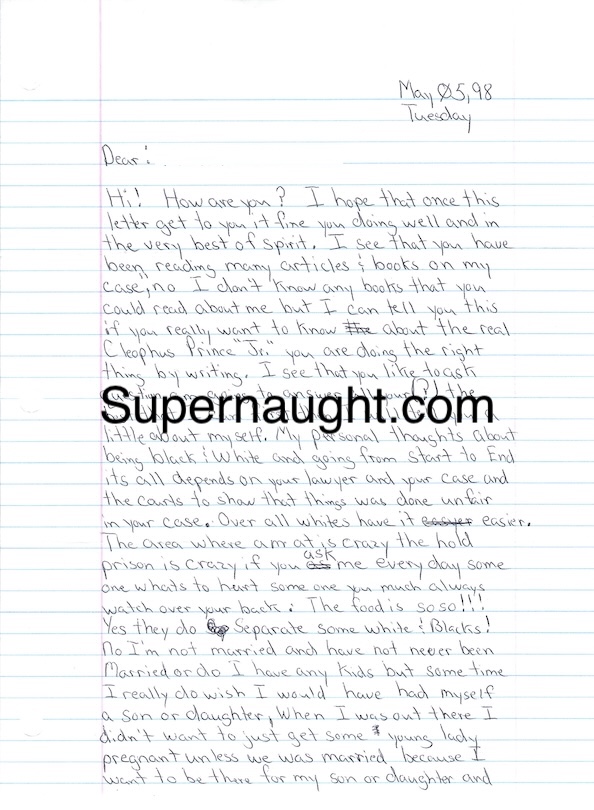 May Ø5, 98
Tuesday
Dear:
Hi! How are you? I hope that once this
letter get to you it fine you doing well and in
the very best of spirit. I see that you have
been reading many articles & books on my
case", no I don't know any books that you
could read about me but I can tell you this
if you really want to know the about the real
Cleophus Prince "Jr." you are doing the right
thing by writing. I see that you like to ask
Supernaught.com
little about myself. My personal thoughts about
being black & White and going from start to End
its all depends on your lawyer and your case and
the courts to show that things was done unfair
in your case. Over all whites have it easyer easier.
The area where am at is crazy the hold
prison is crazy if you as ask me every day some
one whats to hurt some one you much always
watch over your back. The food is so so!!!
Yes they do Separate some white & Blacks!
No I'm not married and have not never been
Married or do I have any Kids but some time
I really do wish I would have had myself
a son or daughter, When I was out there I
didn't want to just get some young lady
pregnant unless we was married because I
want to be there for my son or daughter and